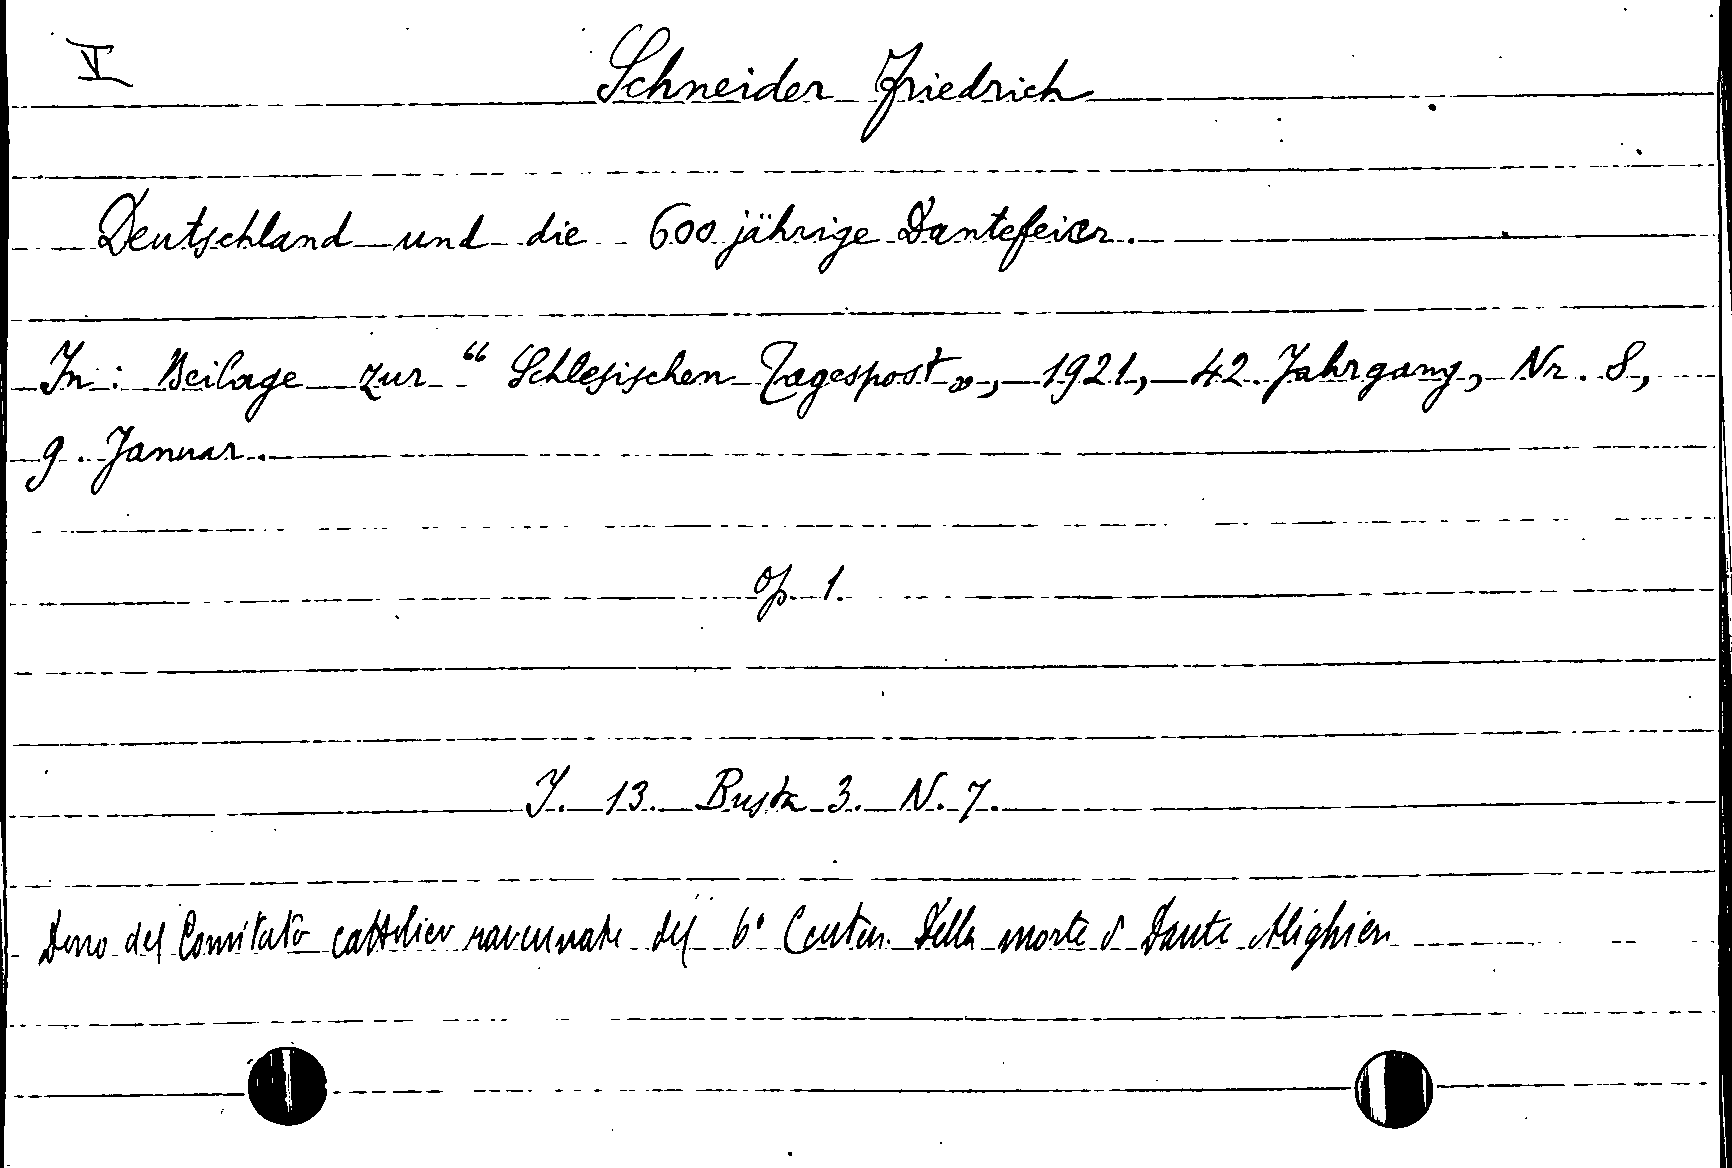 V
Schneider Friedrich
Deutschland und die 600 jährige Dantefeier.
In: Beilage zur “ Schlesischen Tagespost „, 1921, 42. Jahrgang, Nr. 8,
9. Januar.
op. 1.
I. 13. Busta 3. N. 7.
Dono del Comitato cattolico ravennate del 6° Centen. della morte di Dante Alighieri